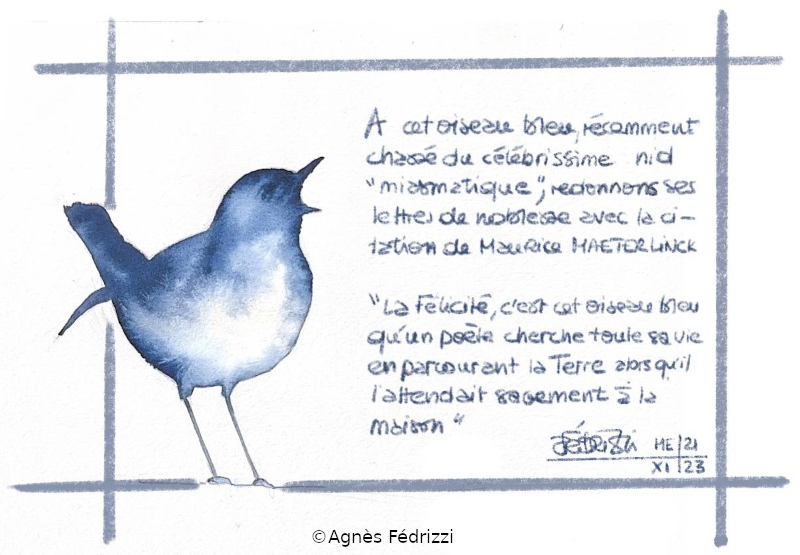 A cet oiseau bleu, récemment
chassé du célébrissime nid
"miasmatique", redonnons ses
lettres de noblesse avec la ci-
tation de Maurice MAETERLINCK
"La Félicité, c'est cet oiseau bleu
qu'un poète cherche toute sa vie
en parcourant la Terre alors qu'il
l'attendait sagement à la
maison"
FÉDRIZZI ME/21
XI/23
©Agnès Fédrizzi